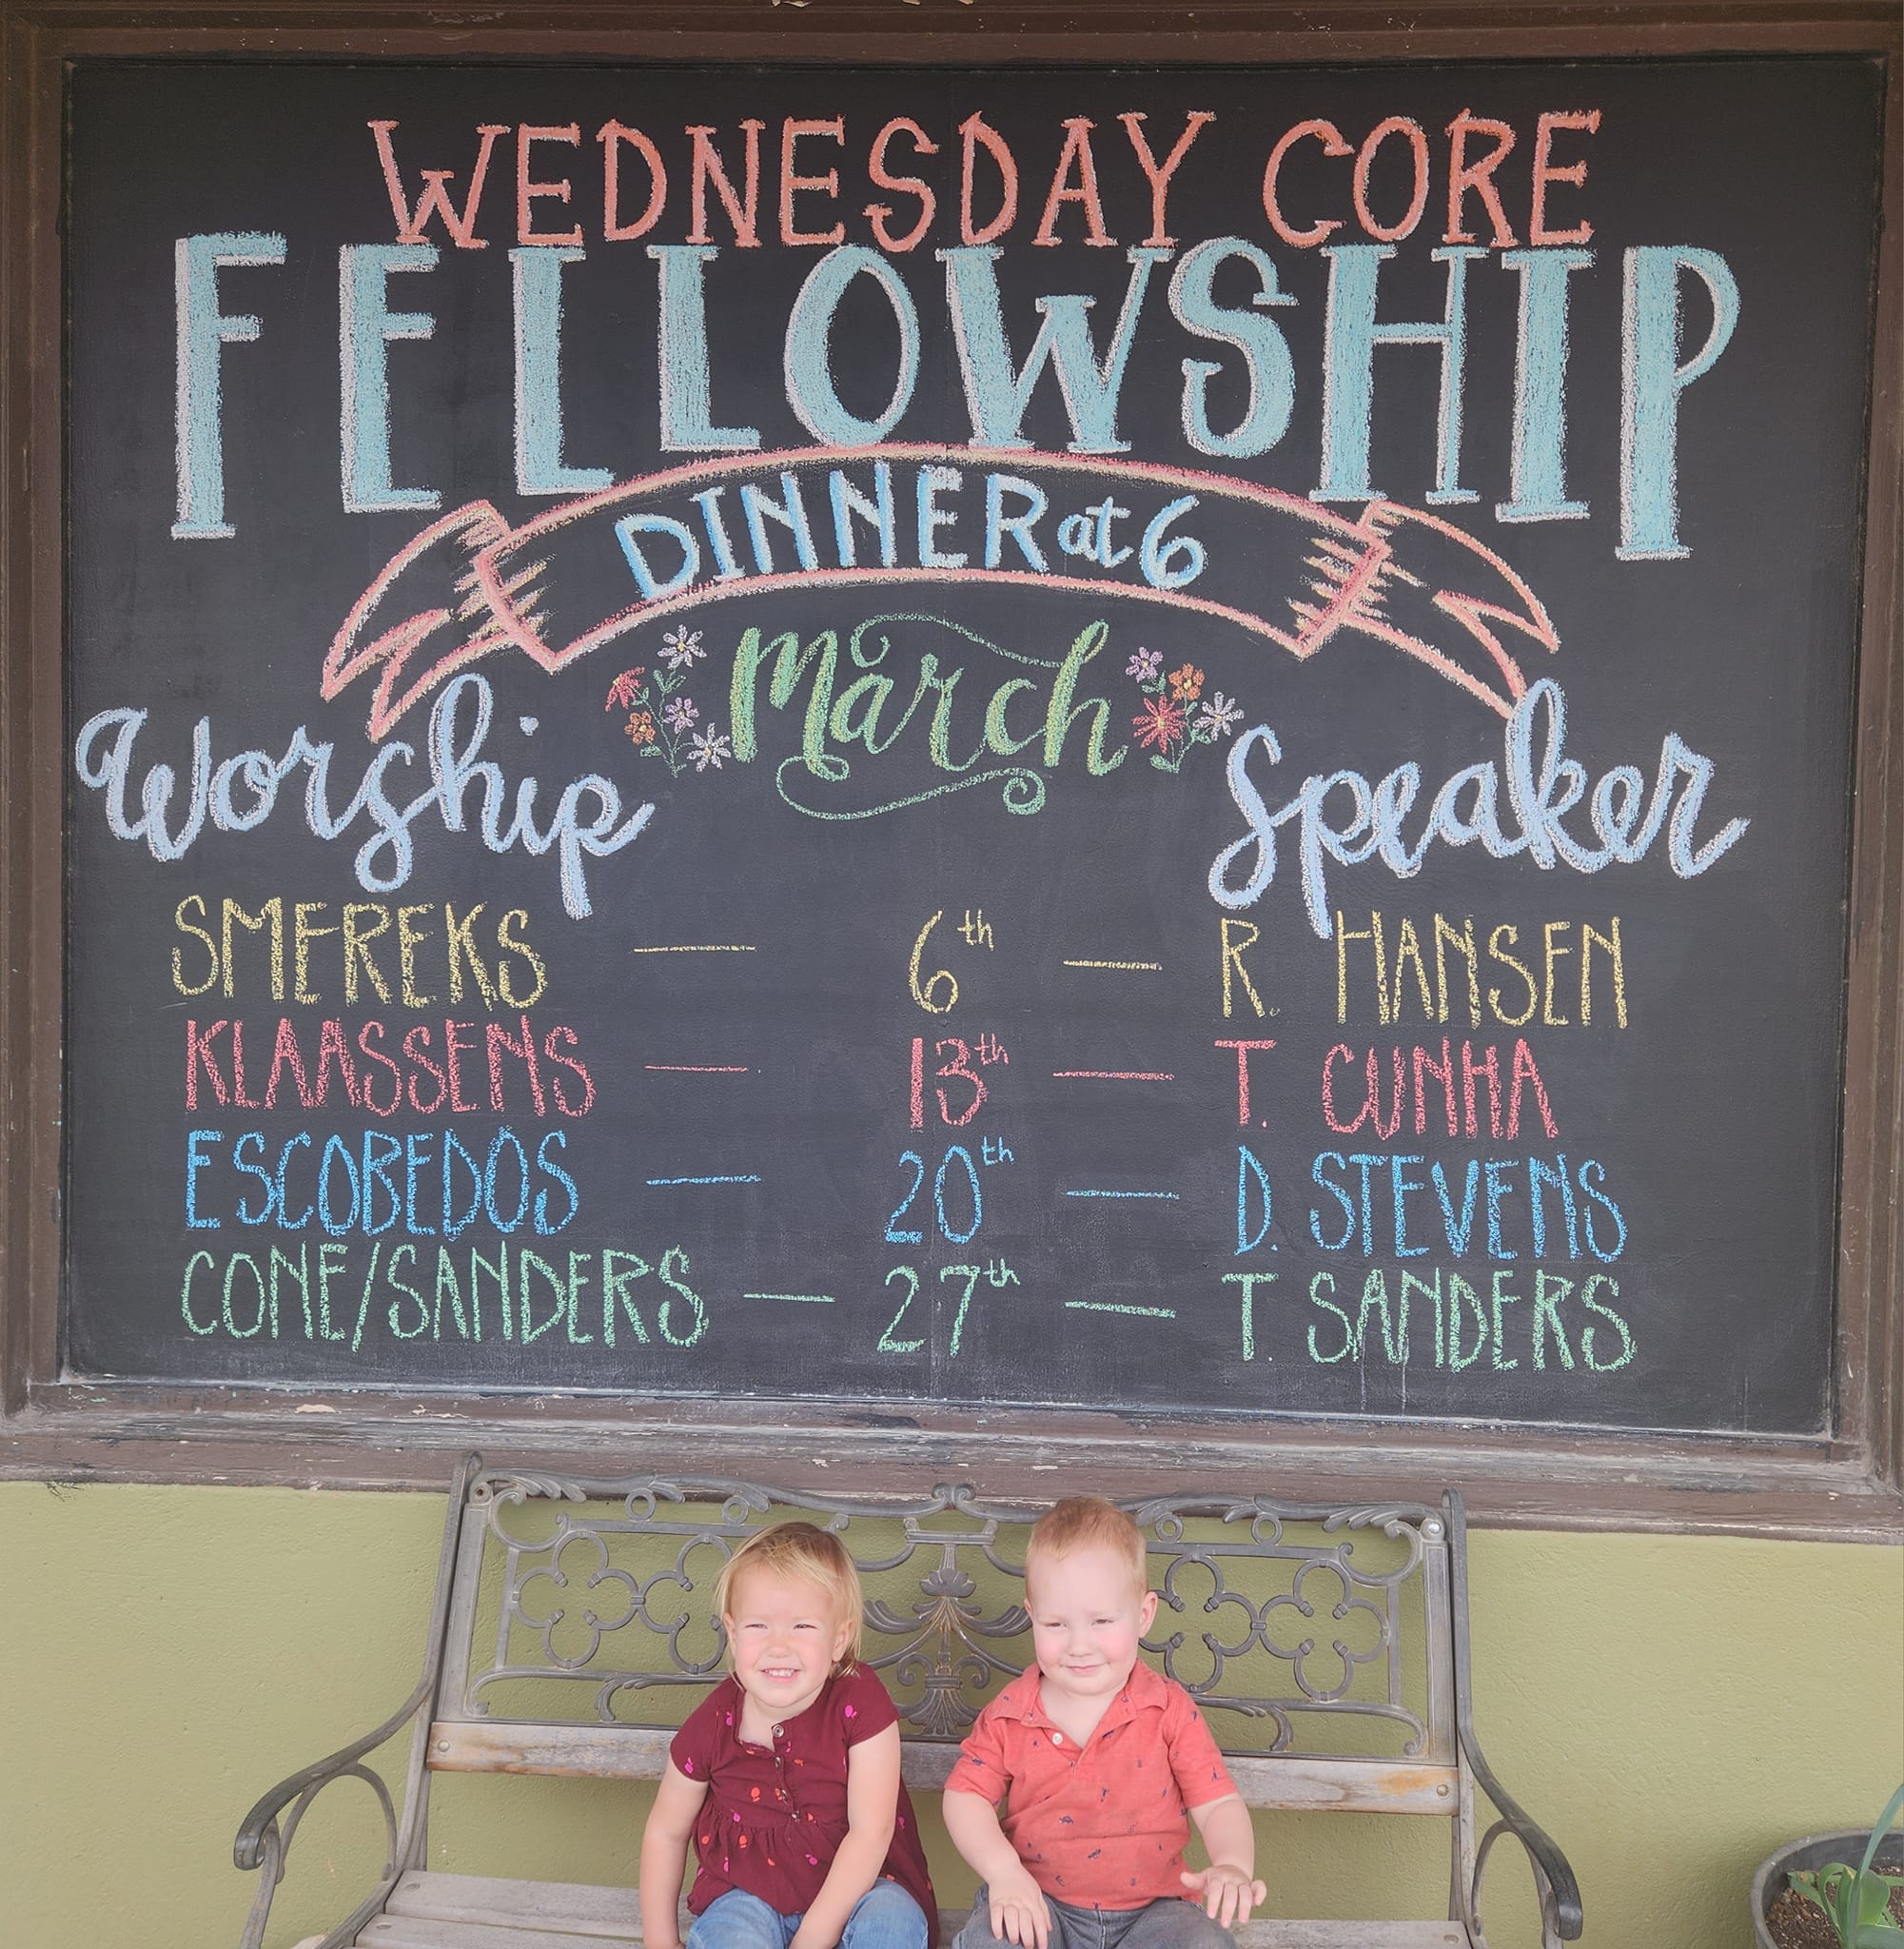 WEDNESDAY CORE
FELLOWSHIP
DINNER at 6
March
Worship Speaker
SMEREKS — 6th — R. HANSEN
KLAASSENS — 13th — T. CUNHA
ESCOBEDOS — 20th — D. STEVENS
CONE/SANDERS — 27th — T. SANDERS